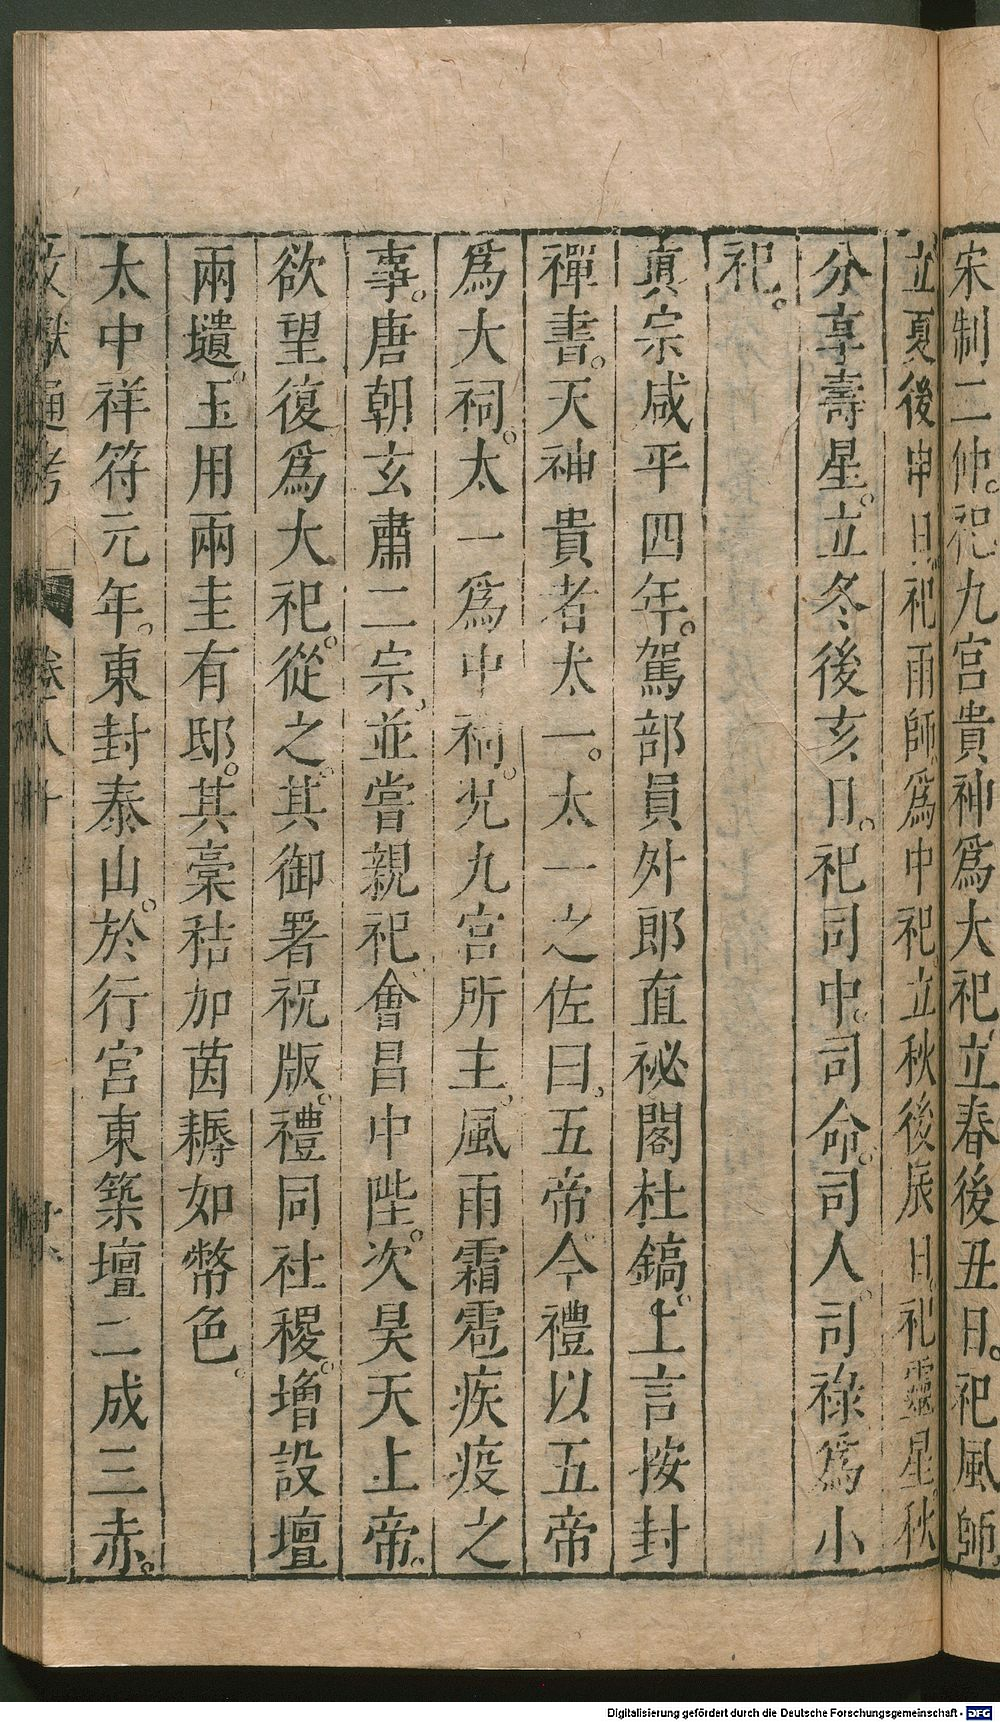 宋制二仲。祀九宫貴神爲大祀、立春後丑日。祀風師、
立夏後申日。祀雨師爲中祀立秋後辰日。祀靈星。秋
分享壽星。立冬後亥日。祀司中。司命。司人。司祿爲小
祀。
眞宗咸平四年。駕部員外郎直祕閣杜鎬。上言按封
禪書。天神貴者太一。太一之佐曰、五帝。今禮以五帝
爲大祠。太一爲中祠。况九宮所主、風雨霜雹疾疫之
事。唐朝玄肅二宗、並嘗親祀會昌中陛。次昊天上帝。
欲望復爲大祀。從之。其御署祝版。禮同社稷。增設壇
兩壝。玉用兩圭有邸。其稾秸加茵褥如幣色。
太中祥符元年。東封泰山。於行宮東築壇二成三赤。
文獻通考 卷八十